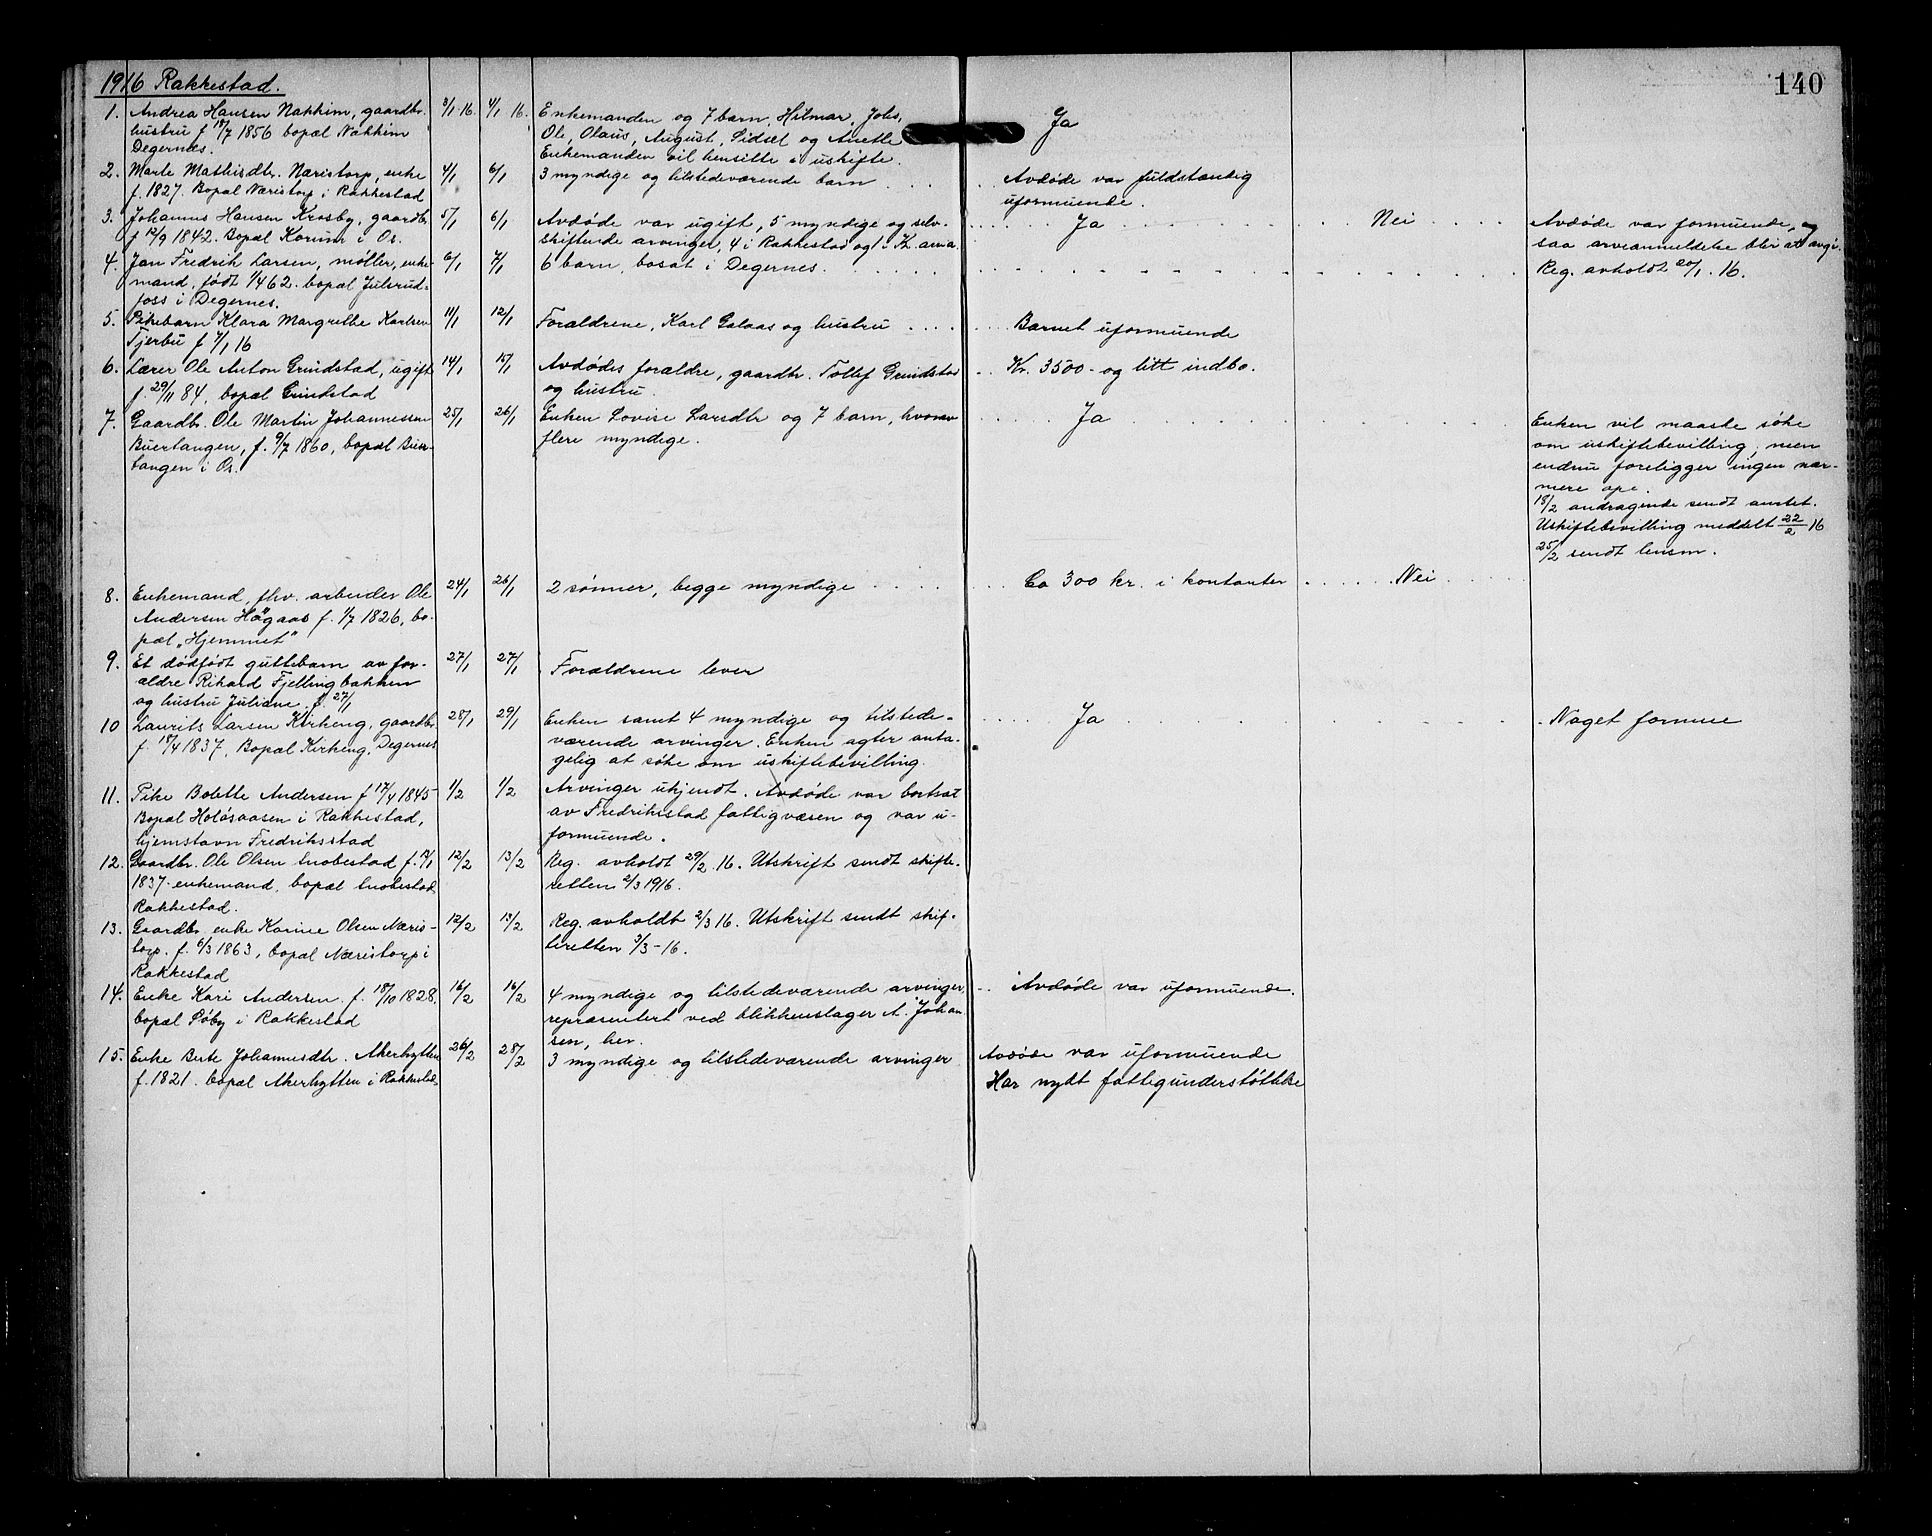 140
1916 Rakkestad.
1. Andrea Hansen Nakkim, gaardbr. 3/1 16. 4/1 16. Enkemanden og 7 barn, Hilmar, Johs, Ja
hustru f 18/7 1856 bopæl Nakkim Ole, Olaus, August, Sidsel og Anette
Degernes. Enkemanden vil hensitte i uskifte.
2. Marte Mathisdtr. Næristorp, enke 4/1 6/1 3 myndige og tilstedeværende barn . . . . . . Avdøde var fuldstændig
f. 1827. Bopæl Næristorp i Rakkestad uformuende.
3. Johannes Hansen Krosby, gaardb. 5/1 6/1 Avdøde var ugift, 5 myndige og selv- Ja Nei Avdøde var formuende, og
f 12/9 1842. Bopæl Korum i Os. skiftende arvinger, 4 i Rakkestad og 1 i Kr.ania. saa arveanmeldelse blir at avgi.
4. Jan Fredrik Larsen, møller, enke- 6/1 7/1 6 barn, bosat i Degernes. Reg. avholdt 20/1. 16.
mand, født 1/4 62. bopæl Julerud-
foss i Degernes.
5. Pikebarn Klara Margrethe Karlsen 11/1 12/1 Forældrene, Karl Galaas og hustru . . . . Barnet uformuende
Tjerbu f 7/1 16
6. Lærer Ole Anton Grindstad, ugift 14/1 15/1 Avdødes forældre, gaardbr. Tollef Grindstad . . Kr. 3500 - og litt indbo.
f. 29/11 84, bopæl Grindstad og hustru.
7. Gaardbr. Ole Martin Johannessen 25/1 26/1 Enken Lovise Larsdtr og 7 barn, hvorav Ja Enken vil maaske søke
Buertangen, f. 9/7 1860, bopæl Buer- flere myndige. om uskiftebevilling, men
tangen i Os. endnu foreligger ingen nær-
mere opg.
18/2 andragende sendt amtet.
Uskiftebevilling meddelt 22/2 16
25/2 sendt lensm.
8. Enkemand, fhv. arbeider Ole 24/1 26/1 2 sønner, begge myndige . . . . Ca 300 kr. i kontanter . . . . . Nei
Andersen Høgaas f. 1/7 1826, bo-
pæl „Hjemmet"
9. Et dødfødt guttebarn av for- 27/1 27/1 Forældrene lever
ældre Rikard Fjellingbakken
og hustru Juliane f. 27/1
10 Laurits Larsen Kirkeng, gaardb. 28/1 29/1 Enken samt 4 myndige og tilstede- Ja Noget formue
f. 18/4 1837. Bopæl Kirkeng, Degernes værende arvinger. Enken agter anta-
gelig at søke om uskiftebevilling.
11. Pike Bolette Andersen f 17/4 1845 1/2 1/2 Arvinger ukjendt. Avdøde var bortsat
Bopæl Holøsaasen i Rakkestad, av Fredriksstad fattigvæsen og var u-
hjemstavn Fredriksstad formuende.
12. Gaardbr. Ole Olsen 12/2 13/2 Reg. avholdt 29/2. 16. Utskrift sendt skifte-
1837. enkemand, bopæl retten 2/3 1916.
Rakkestad.
13. Gaardbr. enke Karine Olsen Næris- 12/2 13/2 Reg. avholdt 2/3 16. Utskrift sendt skif-
torp. f. 6/3 1863, bopæl Næristorp i teretten 3/3-16.
Rakkestad
14. Enke Kari Andersen. f. 18/10 1828, 16/2 16/2 4 myndige og tilstedeværende arvinger, . . Avdøde var uformuende.
bopæl Søby i Rakkestad repræsentert ved blikkenslager A. Johan-
sen, her.
15. Enke Berte Johannesdtr. Akerhytten 26/2 28/2 3 myndige og tilstedeværende arvinger Avdøde var uformuende
f. 1821. bopæl Akerhytten i Rakkestad. Har nydt fattigunderstøttelse